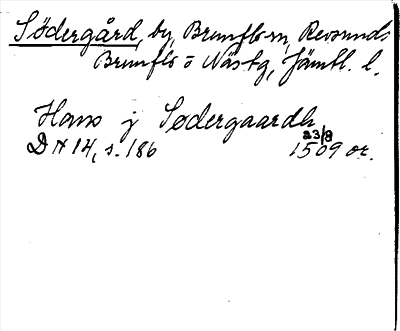 Södergård, by, Brunflo sn, Revsunds
Brunflo o Näs tg, Jämtl. l.
Hans j Södergaardh
23/8
DN 14, s. 186 1509 or.